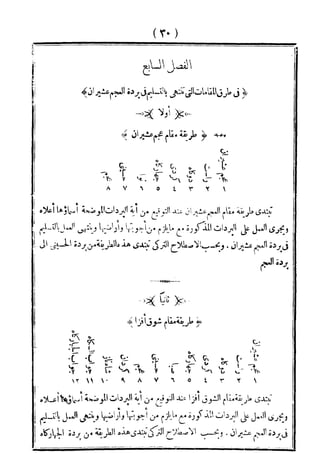 ( ٣٠ )
الفصل السابع
﴿ فى طرق المقامات التى تنتهى بالتسليم فى بردة العجم عشيران ﴾
﴿ أولا ﴾
﴿ طريقة مقام عجم عشيران ﴾
عجم عشيران راست دوكاه كردى جهاركاه نوا حسينى عجم
١ ٢ ٣ ٤ ٥ ٦ ٧ ٨
تبتدى طريقة مقام العجم عشيران عند التوقيع من أية البردات الموضحة أسماؤها أعلاه
ويجرى العمل على البردات المذكورة مع مايلزم من أجوبتها وأراضيها وينتهى العمل بالتسليم
فى بردة العجم عشيران . وبحسب الاصطلاح التركى تبتدى هذه الطريقة من بردة الحسينى الى
بردة العجم
﴿ ثانيا ﴾
﴿ طريقة مقام شوق أفزا ﴾
عجم عشيران راست دوكاه كردى جهاركاه صبا حسينى عجم كردان شهناز جواب السيكاه جواب الجهاركاه
١ ٢ ٣ ٤ ٥ ٦ ٧ ٨ ٩ ١٠ ١١ ١٢
تبتدى طريقة مقام الشوق أفزا عند التوقيع من أية البردات الموضحة أسماؤها أعلاه
ويجرى العمل على البردات المذكورة مع مايلزم من أجوبتها وأراضيها وينتهى العمل بالتسليم
فى بردة العجم عشيران . وبحسب الاصطلاح التركى تبتدى هذه الطريقة من بردة الجهاركاه